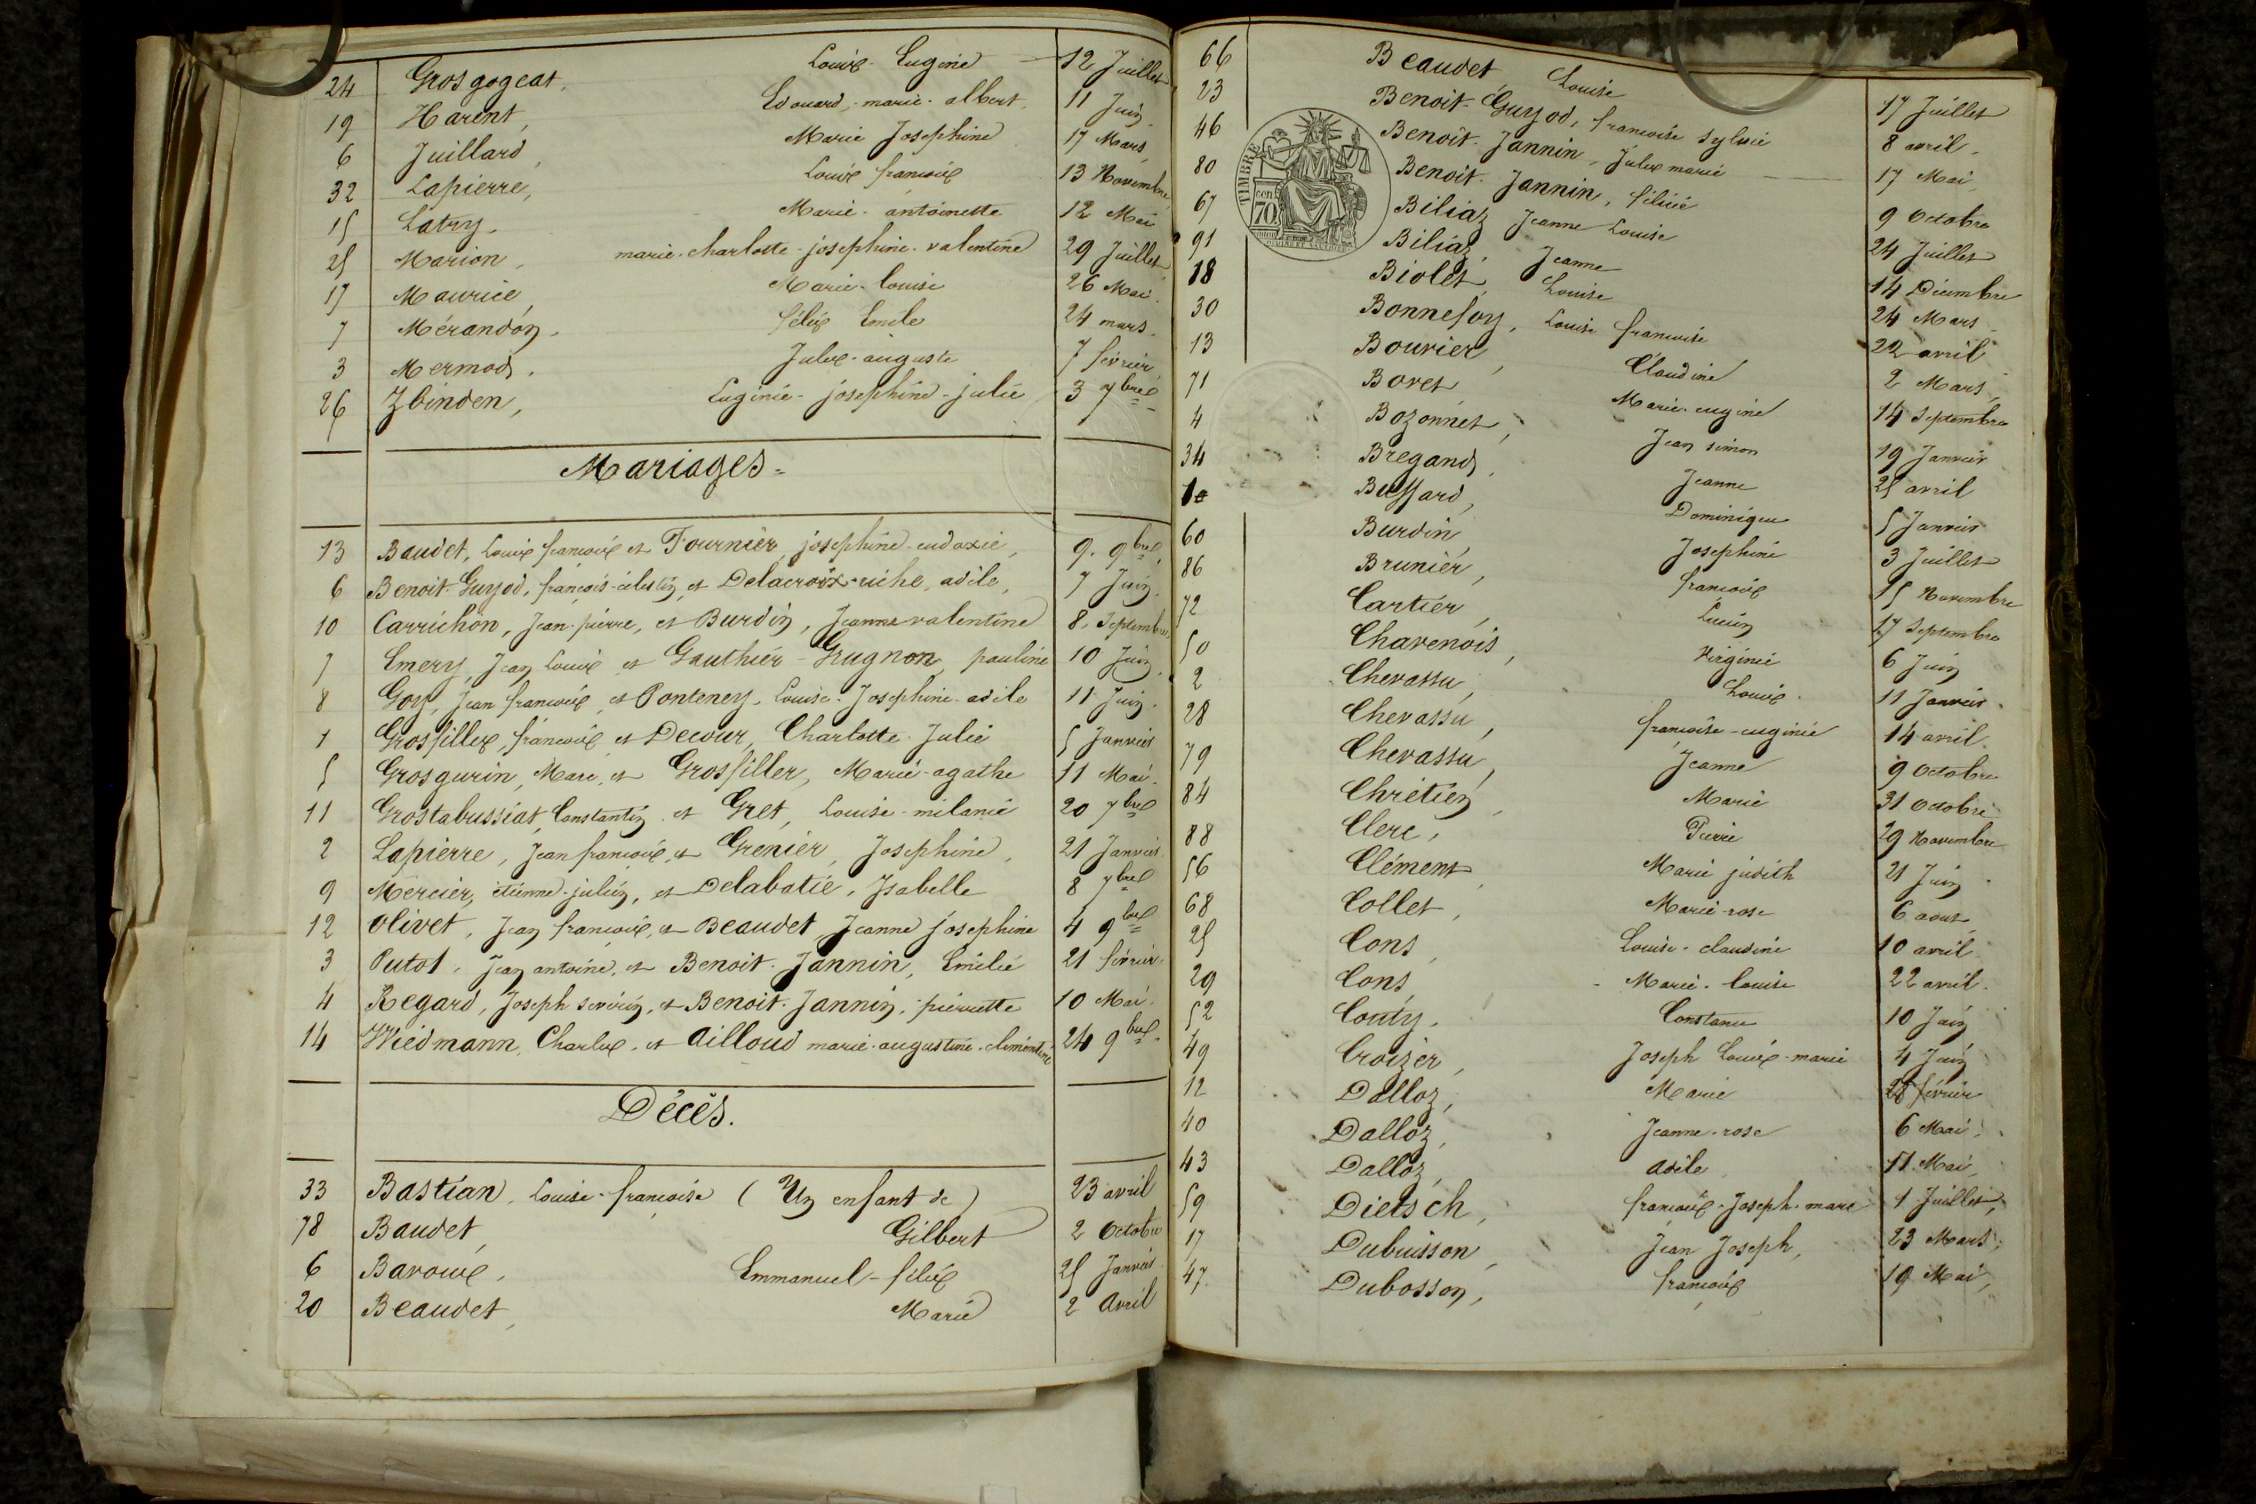 24 Grosgogeat, Louis Eugène 12 Juillet
19 Harent, Edouard-marie-albert 11 Juin
6 Juillard, Marie Joséphine 17 Mars
32 Lapierre, Louis françois 13 Novembre
15 Latry, Marie-antoinette 12 Mai
25 Marion, marie-charlotte-joséphine-valentine 29 Juillet
17 Maurice, Marie-louise 26 Mai
7 Mérandon, félix Emile 24 mars
3 Mermod, Jules-auguste 7 février
26 Zbinden, Eugénie-joséphine-julie 3 7bre
Mariages
13 Baudet, Louis françois et Fournier, joséphine-eudoxie, 9. 9bre
6 Benoit-Guyod, françois-célestin, et Delacroix-riche, adèle, 7 Juin.
10 Carrichon, Jean-pierre, et Burdin, Jeanne valentine 8. Septembre
7 Emery, Jean Louis et Gauthier-Grugnon, pauline 10 Juin
8 Goy, Jean françois, et Ponteney, Louise-Joséphine-adèle 11 Juin.
1 Grosfillex, françois et Decour, Charlotte-Julie 5 Janvier
5 Grosgurin, Marc, et Grosfiller, Marie-agathe 11 Mai.
11 Grostabussiat, Constantin et Gret, Louise-mélanie 20 7bre
2 Lapierre, Jean françois, et Grenier, Joséphine, 21 Janvier
9 Mercier, étienne-julien, et Delabatie, Isabelle 8 7bre
12 Olivet, Jean françois, et Beaudet, Jeanne joséphine 4 9bre
3 Putot, Jean antoine, et Benoit-Jannin, Emélie 21 février.
4 Regard, Joseph séverin, et Benoit-Jannin, pierrette 10 Mai.
14 Wiedmann, Charles, et Ailloud marie-augustine-clémentine 24 9bre.
Décès.
33 Bastian, Louise-françoise (Un enfant de) 23 avril
78 Baudet, Gilbert 2 Octobre
6 Baroux, Emmanuel-félix 25 Janvier
20 Beaudet, Marie 2 Avril
66 Beaudet, Louise 17 Juillet
23 Benoit-Guyod, françoise Sylvie 8 avril.
46 Benoit-Jannin, Jules marie 17 Mai
80 Benoit-Jannin, félicie 9 Octobre
67 Biliaz, Jeanne Louise 24 Juillet
91 Biliaz, Jeanne 14 Décembre
18 Biolet, Louise 24 Mars
30 Bonnefoy, Louise françoise 22 avril
13 Bouvier, Claudine 2 Mars
71 Bovet Marie-eugène 14 Septembre
4 Bozonnet, Jean simon 19 Janvier
34 Bregand, Jeanne 25 avril
1 Bussard, Dominique 5 Janvier
60 Burdin, Joséphine 3 Juillet
86 Brunier, françois 15 Novembre
72 Cartier, Lucien 17 Septembre
50 Chavenois, Virginie 6 Juin
2 Chevassu, Louis 11 Janvier.
28 Chevassu, françoise-eugénie 14 avril.
79 Chevassu, Jeanne 9 Octobre
84 Chrétien, Marie 31 Octobre
88 Clerc, Pierre 29 Novembre
56 Clément Marie judith 21 Juin
68 Collet, Marie-rose 6 aout
25 Cons, Louise-claudine 10 avril
29 Cons Marie-louise 22 avril.
52 Couty, Constance 10 Juin
49 Croizer, Joseph Louis-marie 4 Juin
12 Dalloz, Marie 28 février
40 Dalloz, Jeanne-rose 6 Mai.
43 Dalloz, adèle 11 Mai,
59 Dietsch, françois-Joseph-marc 1 Juillet,
17 Dubuisson, Jean Joseph, 23 Mars,
47. Dubosson, françois 19 Mai,
TIMBRE
70